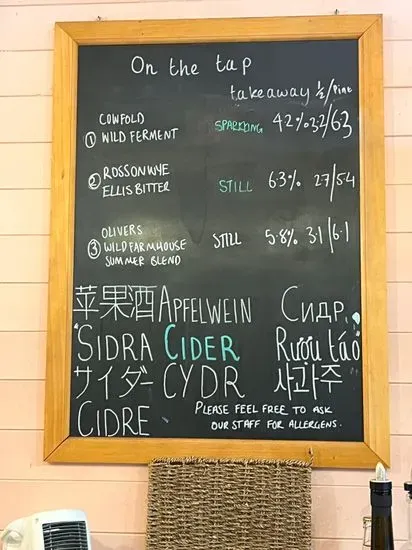 On the tap
takeaway ½/Pint
COWFOLD
① WILD FERMENT SPARKLING 4.2% 3.2/6.3
② ROSSONWYE
ELLIS BITTER STILL 6.3% 2.7/5.4
OLIVERS
③ WILD FARMHOUSE STILL 5.8% 3.1/6.1
SUMMER BLEND
苹果酒 APFELWEIN Сидр
SIDRA CIDER Rượu táo
サイダー CYDR 사과주
CIDRE
PLEASE FEEL FREE TO ASK
OUR STAFF FOR ALLERGENS.